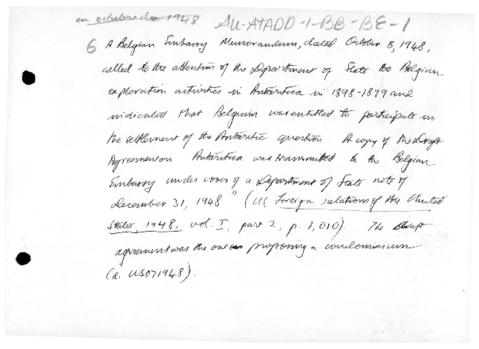 en octobre 1948 AU-ATADD-1-BB-BE-1
6 A Belgian Embassy Memorandum, dated October 8, 1948,
called to the attention of the Department of State the Belgian
exploration activities in Antarctica in 1898-1899 and
indicated that Belgium was entitled to participate in
the settlement of the Antarctic question. A copy of the draft
Agreement on Antarctica was transmitted to the Belgian
Embassy under cover of a Department of State note of
December 31, 1948" (US Foreign relations of the United
States, 1948, vol. I, part 2, p. 1,010). The draft
agreement was the one proposing a condominium
(a. US071948).